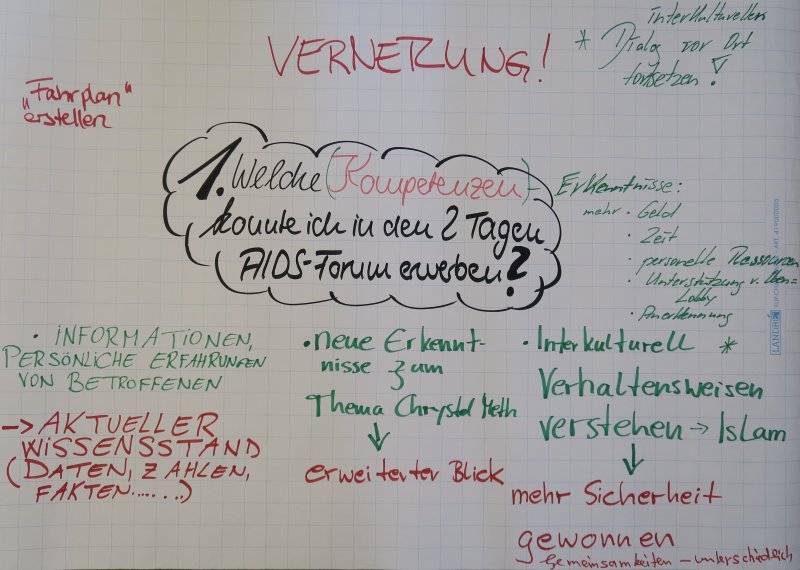 VERNETZUNG!
* interkulturellen
Dialog vor Ort
fortsetzen!
"Fahrplan"
erstellen
1. Welche (Kompetenzen)
konnte ich in den 2 Tagen
AIDS-Forum erwerben?
Erkenntnisse:
mehr · Geld
· Zeit
· personelle Ressourcen
· Unterstützung v. Oben =
Lobby
· Anerkennung
· INFORMATIONEN,
PERSÖNLICHE ERFAHRUNGEN
VON BETROFFENEN
→ AKTUELLER
WISSENSSTAND
(DATEN, ZAHLEN,
FAKTEN......)
· neue Erkennt-
nisse zum
Thema Chrystel Meth
↓
erweiterter Blick
· Interkulturell *
Verhaltensweisen
verstehen → Islam
↓
mehr Sicherheit
gewonnen
Gemeinsamkeiten – unterschiedlich
LANDRÉ